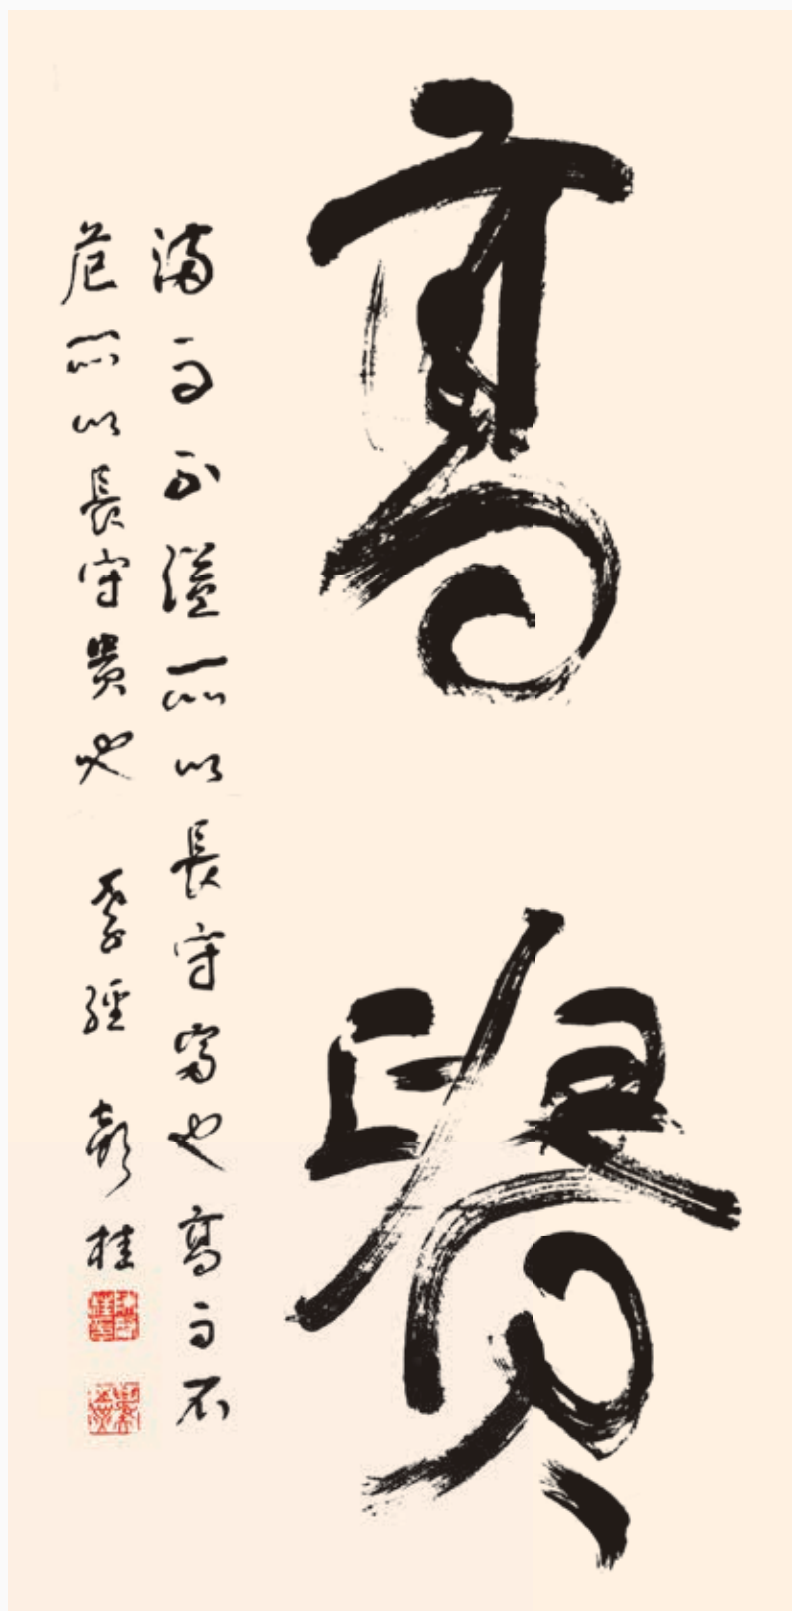 高賢
滿而不溢所以長守富也高而不
危所以長守貴也 孝經 彭桂